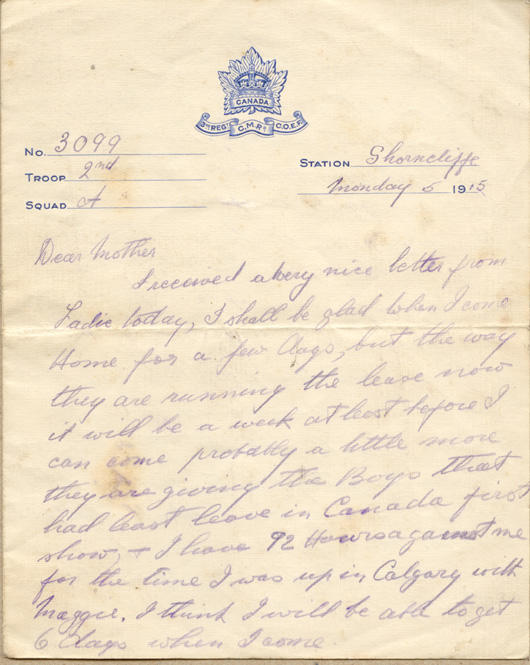 CANADA
3RD REGT C.M.R. C.O.E.F.
No. 3099
TROOP 2nd
SQUAD A
STATION Shorncliffe
Monday 5 1915
Dear Mother
I received a very nice letter from
Sadie today, I shall be glad when I come
Home for a few days, but the way
they are running the leave now
it will be a week at least before I
can come probably a little more
they are giving the Boys that
had least leave in Canada first
show, + I have 92 Hours against me
for the time I was up in Calgary with
Maggie. I think I will be able to get
6 days when I come.